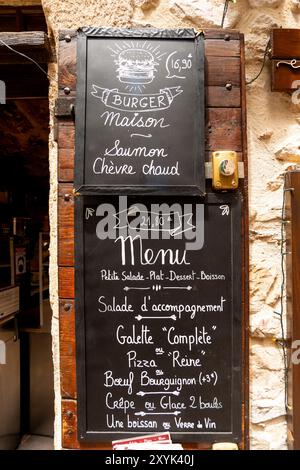 16,90
BURGER
Maison
Saumon
Chèvre chaud
21.80
Menu
Petite Salade - Plat - Dessert - Boisson
Salade d'accompagnement
Galette "Complète"
ou
Pizza "Reine"
ou
Bœuf Bourguignon (+3€)
Crêpe ou Glace 2 boules
Une boisson ou Verre de VIN